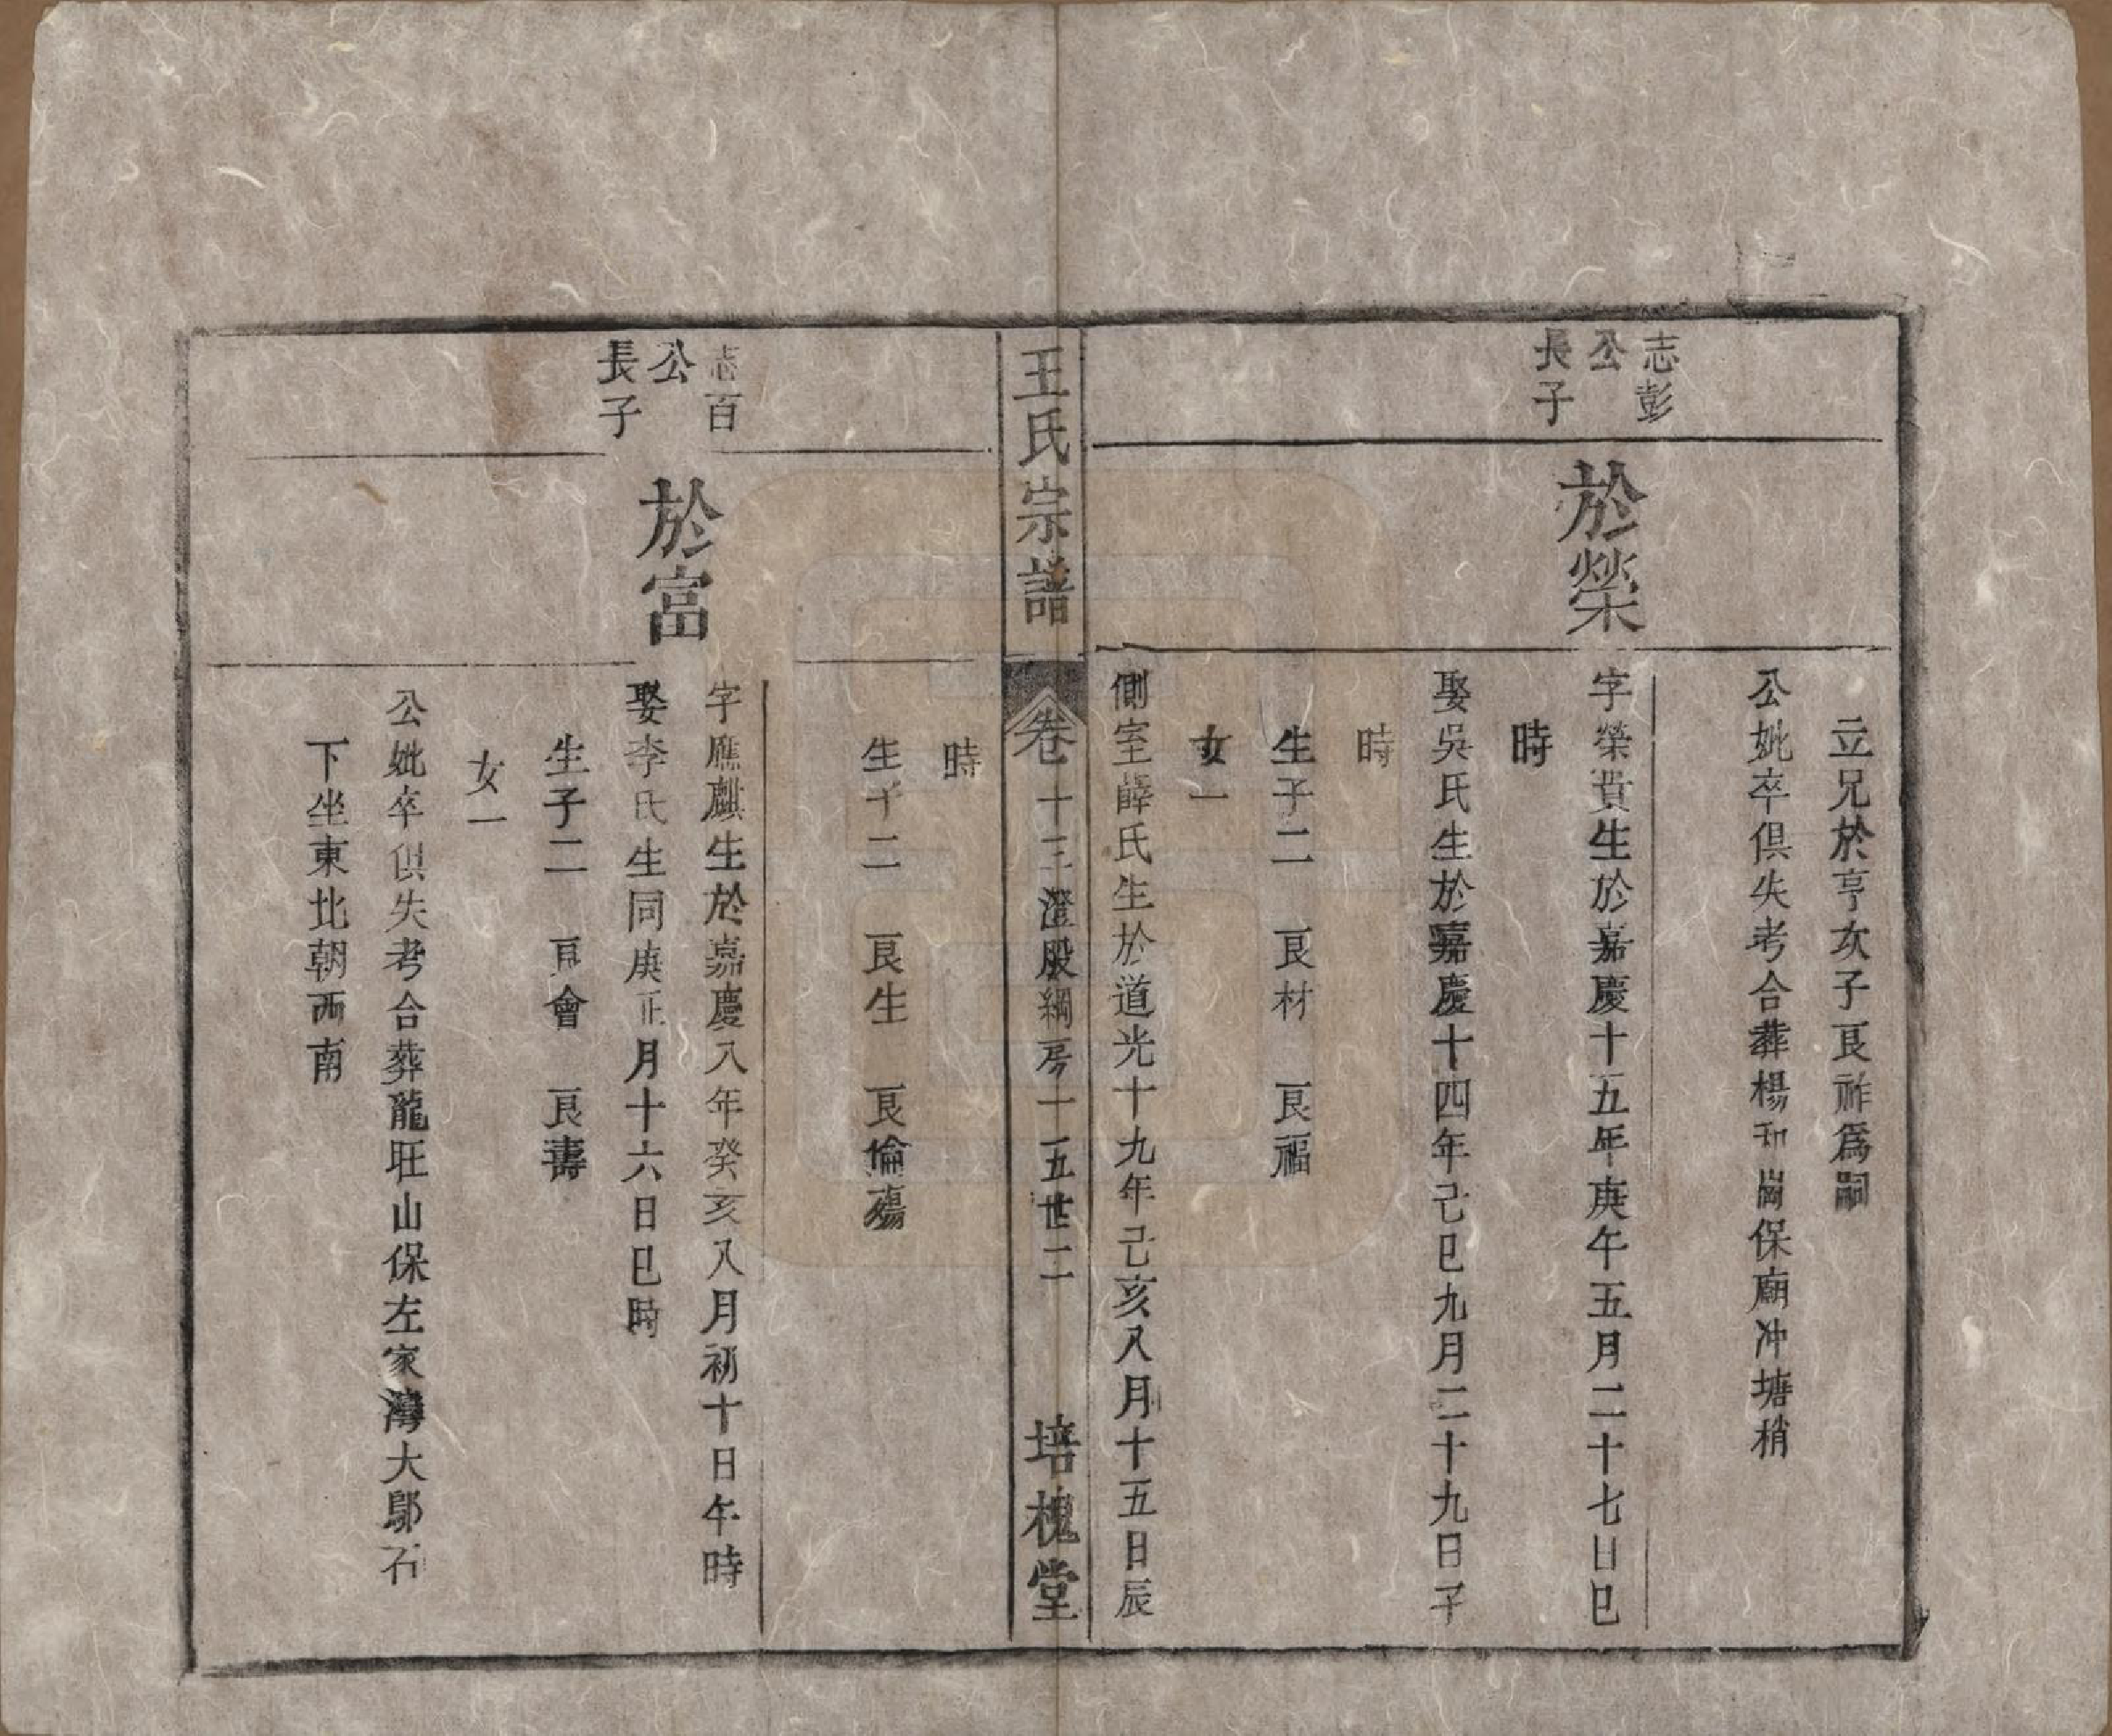 立兄於亨次子良祚爲嗣
公妣卒俱失考合葬楊和崗保廟冲塘梢
志彭
公
長子
於榮
字榮貴生於嘉慶十五年庚午五月二十七日巳
時
娶吳氏生於嘉慶十四年己巳九月二十九日子
時
生子二　良材　良福
女一
側室薛氏生於道光十九年己亥八月十五日辰
王氏宗譜　卷十三澄股綱房十五世二　培槐堂
時
生子二　良生　良倫殤
志百
公
長子
於富
字應麒生於嘉慶八年癸亥八月初十日午時
娶李氏生同庚正月十六日巳時
生子二　良會　良壽
女一
公妣卒俱失考合葬龍旺山保左家灣大鄔石
下坐東北朝西南